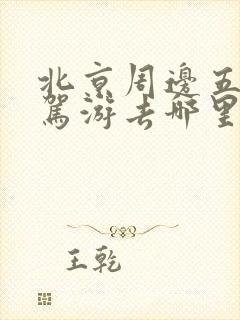 北京周邊五
駕游去哪里
王乾